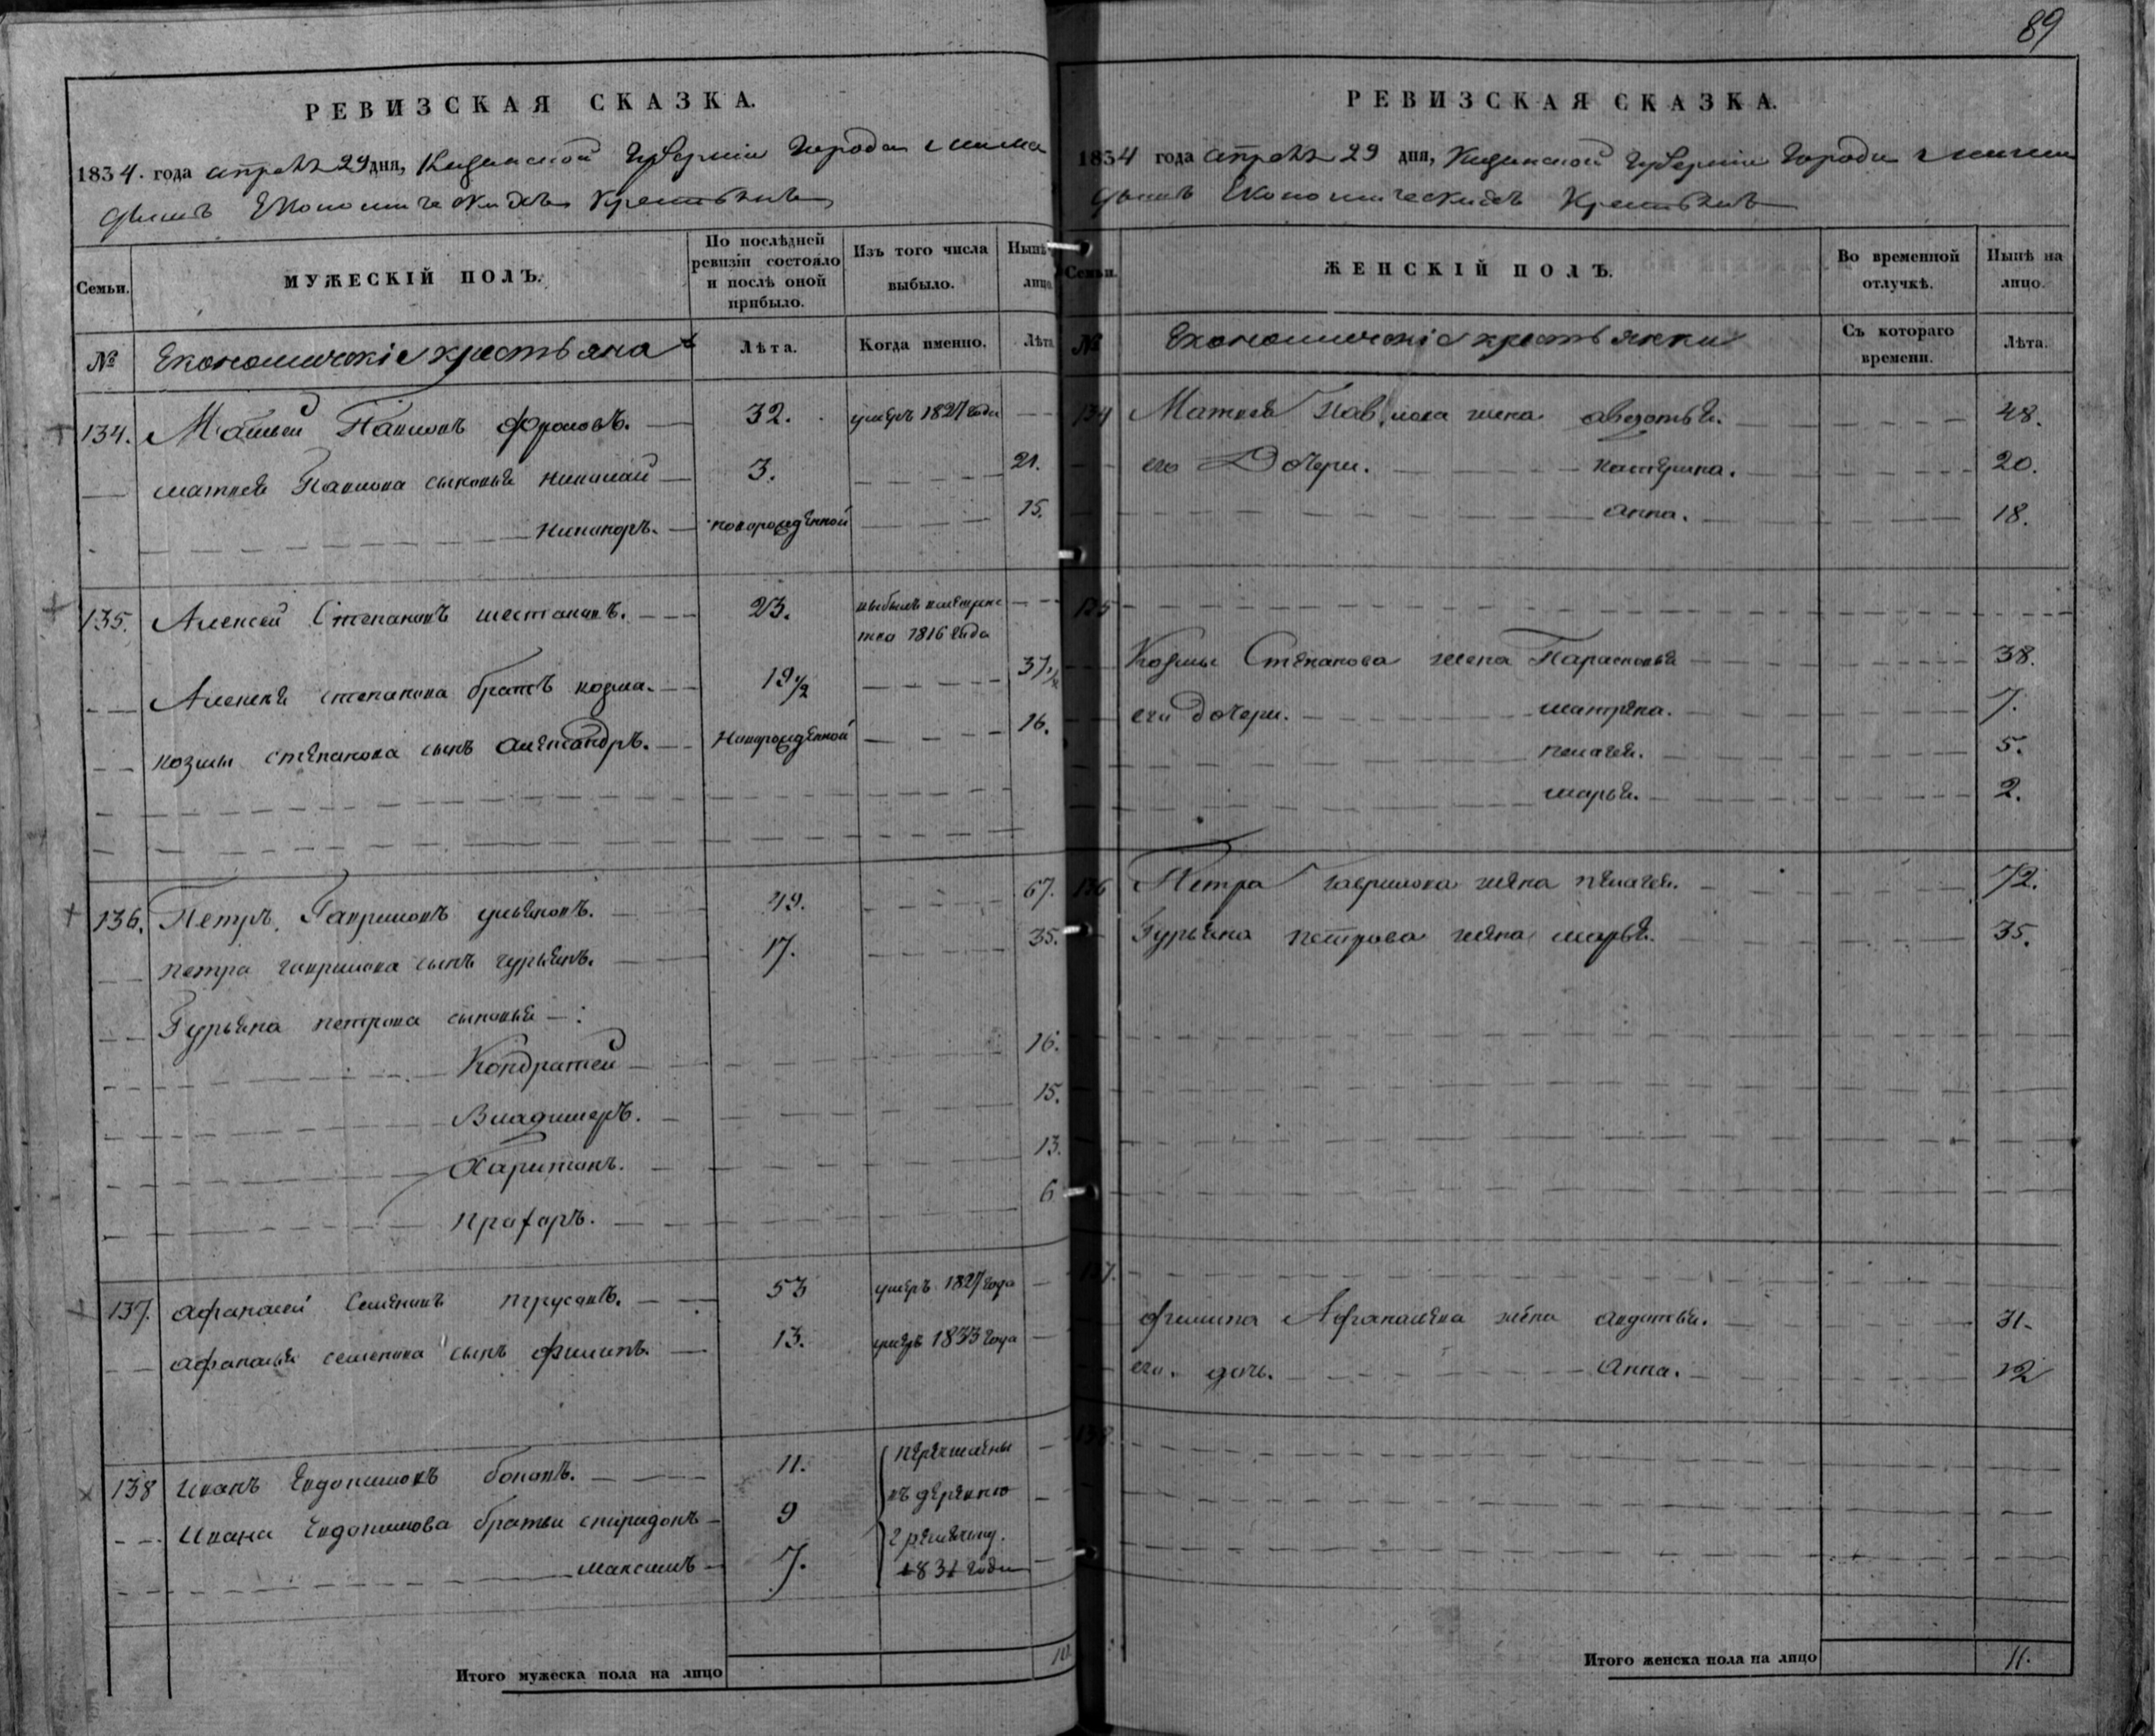 89
РЕВИЗСКАЯ СКАЗКА.
1834. года апреля 29 дня, Казанской Губернии Города
Економическихъ Крестьянъ
Семьи. МУЖЕСКІЙ ПОЛЪ. По послѣдней ревизіи состояло и послѣ оной прибыло. Изъ того числа выбыло. Нынѣ лицо.
№ Економическіе крестьяна Лѣта. Когда именно. Лѣта
134. Матвей Павловъ Фроловъ. 32. умеръ 1827 года
Матвея Павлова сыновья Николай 3. 21.
Никаноръ. новорожденной 15.
135. Алексей Степановъ Шестаковъ. 23. 1816 года
Алексея Степанова братъ Козма. 19 1/2 37 1/2
Козмы Степанова сынъ Александръ. Новорожденной 16.
136. Петръ Гавриловъ 49. 67.
Петра Гаврилова сынъ Гурьянъ. 17. 35.
Гурьяна Петрова сыновья:
Кондратей 16.
Владимеръ. 15.
Харитонъ. 13.
Прафоръ. 6
137. Афанасей Семеновъ Трусовъ. 53 умеръ 1827 года
Афанасья Семенова сынъ Филипъ. 13. умеръ 1833 года
138 Иванъ Евдокимовъ 11.
Ивана Евдокимова братьи Спиридонъ 9 въ деревню
Максимъ 7. 1831 года
Итого мужеска пола на лицо 10.
РЕВИЗСКАЯ СКАЗКА.
1834 года апреля 29 дня, Казанской Губернии Города
Економическихъ Крестьянъ
Семьи. ЖЕНСКІЙ ПОЛЪ. Во временной отлучкѣ. Нынѣ на лицо.
№ Економическіе крестьянки Съ котораго времени. Лѣта.
134 Матвея Павлова жена Авдотья. 48.
его Дочери. Катерина. 20.
Анна. 18.
135
Козмы Степанова жена Парасковья 38.
его дочери. Матрена. 7.
Пелагея. 5.
Марья. 2.
136 Петра Гаврилова жена Пелагея. 72.
Гурьяна Петрова жена Марья. 35.
137.
Филипа Афанасьева жена Авдотья. 31.
его дочь. Анна. 12
138.
Итого женска пола на лицо 11.